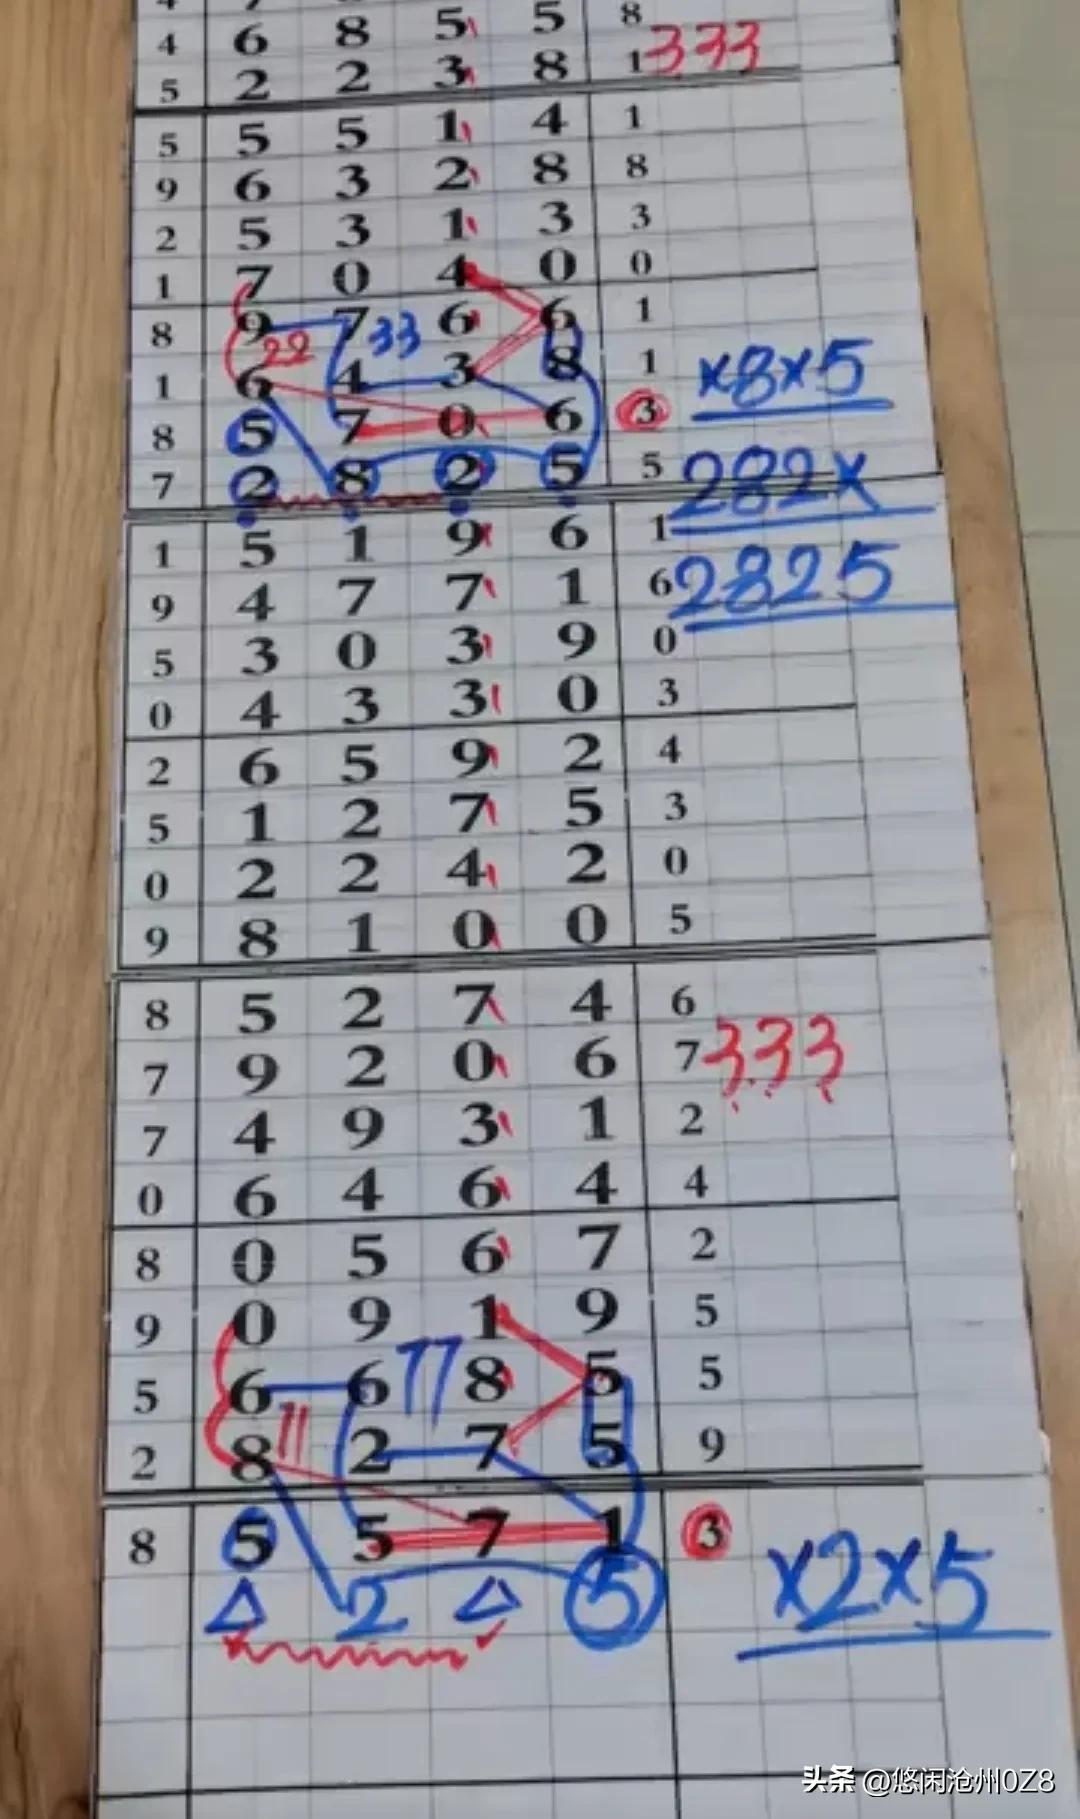 4 6 8 5 5 8
5 2 2 3 8 1 333
5 5 5 1 4 1
9 6 3 2 8 8
2 5 3 1 3 3
1 7 0 4 0 0
8 9 7 6 6 1
22 33
1 6 4 3 8 1 x8x5
8 5 7 0 6 3
7 2 8 2 5 5 282x
1 5 1 9 6 1
9 4 7 7 1 6 2825
5 3 0 3 9 0
0 4 3 3 0 3
2 6 5 9 2 4
5 1 2 7 5 3
0 2 2 4 2 0
9 8 1 0 0 5
8 5 2 7 4 6
7 9 2 0 6 7 333
7 4 9 3 1 2
0 6 4 6 4 4
8 0 5 6 7 2
9 0 9 1 9 5
5 6 6 77 8 5 5
2 8 11 2 7 5 9
8 5 5 7 1 3 x2x5
△ 2 △ 5
头条 @悠闲沧州0Z8